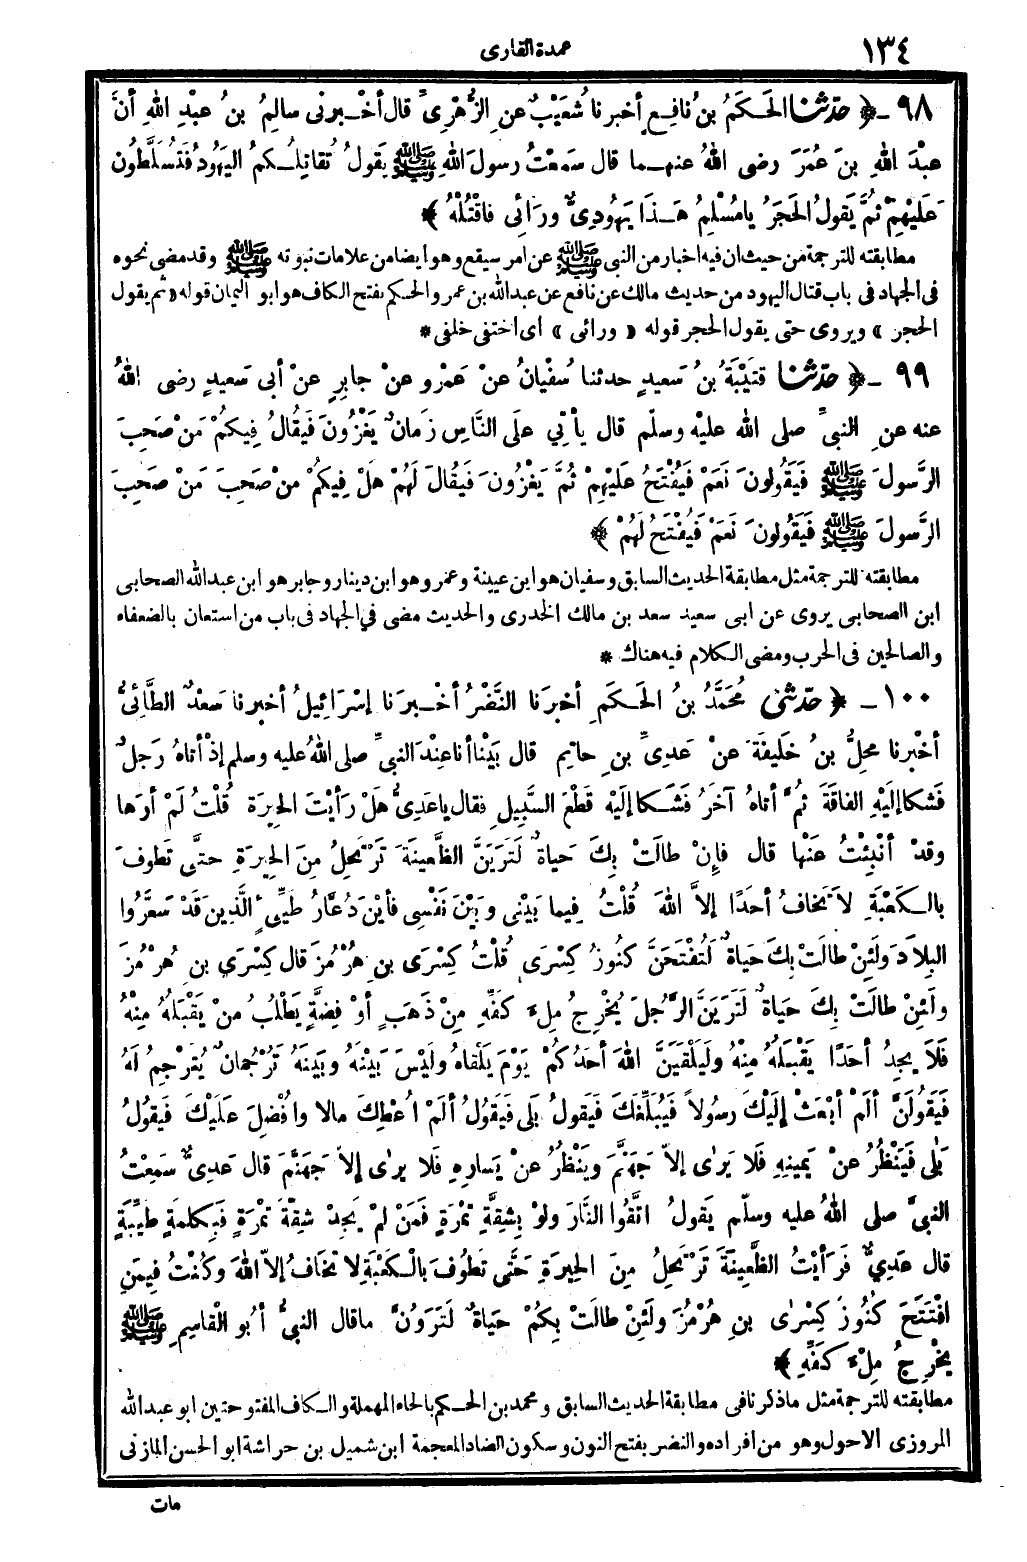 ١٣٤
عمدة القارى
٩٨ ـ ﴿ حدّثنا الحَـكَمُ بنُ نافِعٍ أخبرنا شُعَيْبٌ عنِ الزُّهْرِىِّ قال أخْـبرنى سالِمُ بنُ عبْدِ اللهِ أنَّ
عبْدَ اللهِ بنَ عُمَرَ رضى اللهُ عنهـما قال سَمعْتُ رسولَ اللهِ ﷺ يقُولُ تُقاتِلُـكمُ اليَهُودُ فَتُسَلَّطُون
عَلَيْهِمْ ثُمَّ يَقولُ الحَجَرُ يامُسْلِمُ هَـذَا يَهُودِىٌّ ورَائِى فاقْتُلْهُ ﴾
مطابقته للترجمة من حيث ان فيه اخبار من النبى ﷺ عن امر سيقع وهو ايضا من علامات نبوته ﷺ وقد مضى نحوه
فى الجهاد فى باب قتال اليهود من حديث مالك عن نافع عن عبدالله بن عمر والحـكم بفتح الكاف هو ابو اليمان قوله « ثم يقول
الحجر » ويروى حتى يقول الحجر قوله « ورائى » اى اختفى خلفى *
٩٩ ـ ﴿ حدّثنا قتَيْبَةُ بنُ سَعيدٍ حدثنا سُفْيانُ عنْ عَمْرٍو عنْ جابِرٍ عنْ أبى سَعيدٍ رضى اللهُ
عنه عنِ النبىِّ صلى الله عليْه وسلّم قال يأتِى علَى النَّاسِ زَمانٌ يَغْزُونَ فَيقُالُ فِيكمُ مَنْ صَحِبَ
الرَّسولَ ﷺ فَيَقُولونَ نَعَمْ فَيُفْتَحُ عَلَيْهِمْ ثُمَّ يَغْزُونَ فَيقُالَ لَهُمْ هَلْ فِيكُمْ منْ صَحِبَ مَنْ صَحِبَ
الرَّسولَ ﷺ فَيَقُولونَ نَعَمْ فَيُفْتَحُ لَهُمْ ﴾
مطابقته للترجمة مثل مطابقة الحديث السابق وسفيان هو ابن عيينة وعمرو هو ابن دينار وجابر هو ابن عبدالله الصحابى
ابن الصحابى يروى عن ابى سعيد سعد بن مالك الخدرى والحديث مضى فى الجهاد فى باب من استعان بالضعفاء
والصالحين فى الحرب ومضى الـكلام فيه هناك *
١٠٠ ـ ﴿ حدّثنى مُحَمَّدُ بنُ الحَـكَمِ أخبرَنا النَّضْرُ أخْـبرَنا إسْرَائِيلُ أخبرنا سَعْدٌ الطَّائِىُّ
أخْبرنا محِلُّ بنُ خَلِيفَةَ عنْ عَدِىِّ بنِ حاتِمٍ قال بَيْنا أنا عِنْدَ النبىِّ صلى اللهُ عليه وسلم إذْ أتاهُ رَجلٌ
فَشكا إلَيْهِ الفاقَةَ ثمَّ أتاهُ آخَرُ فَشَـكا إلَيْهِ قَطْعَ السَّبِيلِ فقال ياعَدِىُّ هَلْ رَأيْتَ الحِيرَةَ قُلْتُ لَمْ أرَها
وقدْ أُنْبِئْتُ عنْها قال فإِنْ طالَتْ بِكَ حَياةٌ لَتَرَيَنَّ الظَّعِينَةَ تَرْتَحِلُ مِنَ الحِيرَةِ حتَّى تَطُوفَ
بالـكَعْبَةِ لاَ تَخافُ أحَدًا إلاَّ اللهَ قُلْتُ فِيما بَيْنى وبَيْنَ نَفْسِى فأيْنَ دُعَّارُ طَيِّئٍ الَّذِينَ قَدْ سَعَّرُوا
البِلاَدَ ولَئِنْ طالَتْ بِكَ حَياةٌ لَتُفْتَحَنَّ كُنُوزُ كِسْرَى قُلْتُ كِسْرَى بنِ هُرْمُزَ قال كِسْرَى بنِ هُرْمُزَ
ولَئِنْ طالَتْ بِكَ حَياةٌ لَتَرَيَنَّ الرَّجُلَ يُخْرِجُ مِلْءَ كَفِّهِ مِنْ ذَهَبٍ أوْ فِضَّةٍ يَطْلُبُ مَنْ يَقْبَلُهُ مِنْهُ
فَلاَ يجِدُ أحَدًا يَقْبَلُهُ مِنْهُ ولَيَلْقَيَنَّ اللهَ أحَدُكُمْ يَوْمَ يَلْقاهُ ولَيْسَ بَيْنَهُ وبَيْنَهُ تَرْجُمانٌ يُتَرْجِمُ لَهُ
فَيَقُولَنَّ ألَمْ أبْعَثْ إلَيْكَ رسُولاً فَيُبَلِّغَكَ فَيقولُ بَلى فَيَقُولُ ألَمْ أُعْطِكَ مالا وأُفْضِلَ عَلَيْكَ فَيقُولُ
بَلى فَيَنْظُرُ عنْ يَمِينِهِ فَلاَ يَرٰى إلاّ جَهَنَّمَ ويَنْظُرُ عنْ يَسارِهِ فَلا يرٰى إلاّ جَهَنَّمَ قال عَدِىٌّ سَمِعْتُ
النبىَّ صلى اللهُ عليه وسلّم يَقولُ اتَّقُوا النَّارَ ولوْ بِشِقَّةِ تمْرَةٍ فَمَنْ لمْ يَجِدْ شِقّةَ تمْرَةٍ فَبِكلِمَةٍ طيِّبَةٍ
قال عَدِىٌّ فَرَأيْتُ الظَّعِينَةَ تَرْتَحِلُ مِنَ الحِيرَةِ حَتَّى تَطُوفَ بالـكَعْبَةِ لا تخَافُ إلاّ اللهَ وكُنْتُ فِيمَنِ
افْتَتَحَ كُنُوزَ كِسْرٰى بنِ هرْمُزَ ولَئِنْ طالَتْ بِكُمْ حَياةٌ لَتَرَوُنَّ ماقال النبىُّ أبُو القاسِمِ ﷺ
يخْرِجُ مِلْءَ كَفِّهِ ﴾
مطابقته للترجمة مثل ماذكرنا فى مطابقة الحديث السابق ومحمد بن الحـكم بالحاء المهملة والـكاف المفتوحتين ابو عبد الله
المروزى الاحول وهو من افراده والنضر بفتح النون وسكون الضاد المعجمة ابن شميل بن حراشة ابو الحسن المازنى
مات